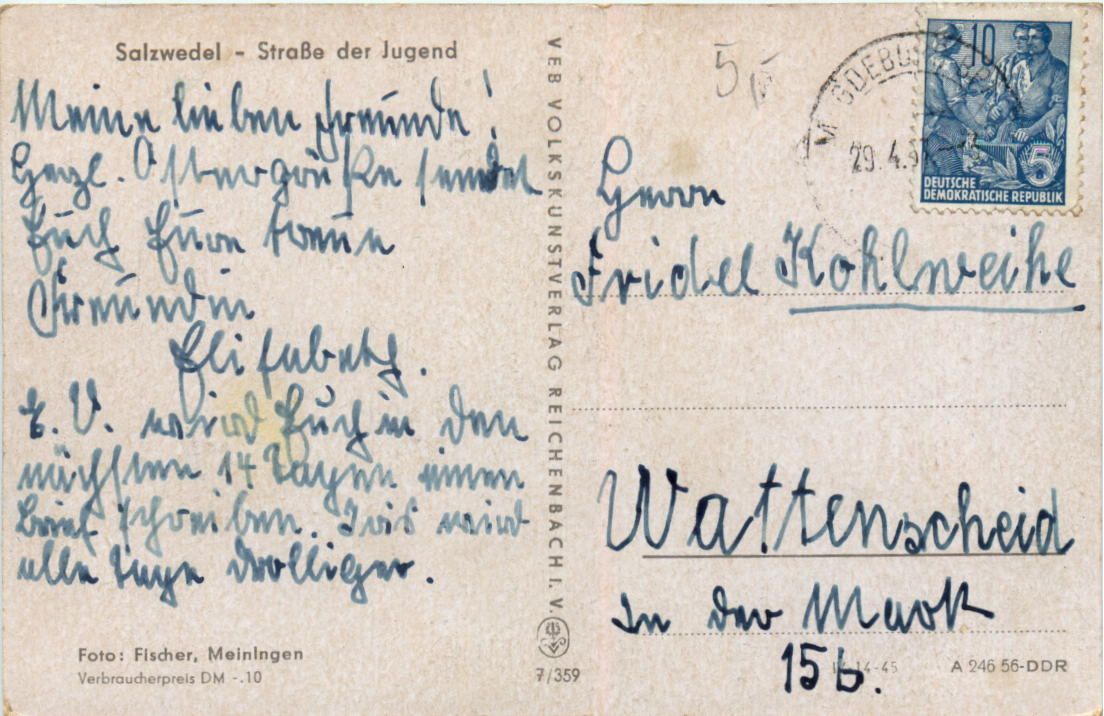 Salzwedel - Straße der Jugend
Meine lieben Freunde!
Herzl. Ostergrüße sendet
Euch Eure treue
Freundin
Elisabeth.
E. V. wird Euch in den
nächsten 14 Tagen einen
Brief schreiben. Iris wird
alle Tage drolliger.
Foto: Fischer, Meiningen
Verbraucherpreis DM -.10
VEB VOLKSKUNSTVERLAG REICHENBACH I. V.
7/359
5
10
5
DEUTSCHE
DEMOKRATISCHE REPUBLIK
29.4.57
Herrn
Fridel Kohlweihe
Wattenscheid
in der Mark
15b.
14-45
A 246 56-DDR